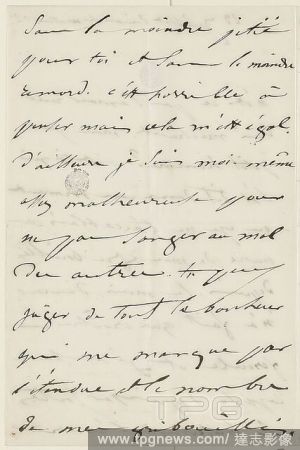 Sans la moindre pitié
pour toi et sans le moindre
remord. c'est horrible à
penser mais cela m'est égal.
D'ailleurs je suis moi-même
assez malheureuse pour
ne pas songer au mal
des autres. tu peux
juger de tout le bonheur
qui me manque par
l'étendue et le nombre
de mes gribouillis
TPG
www.tpgnews.com / 達志影像